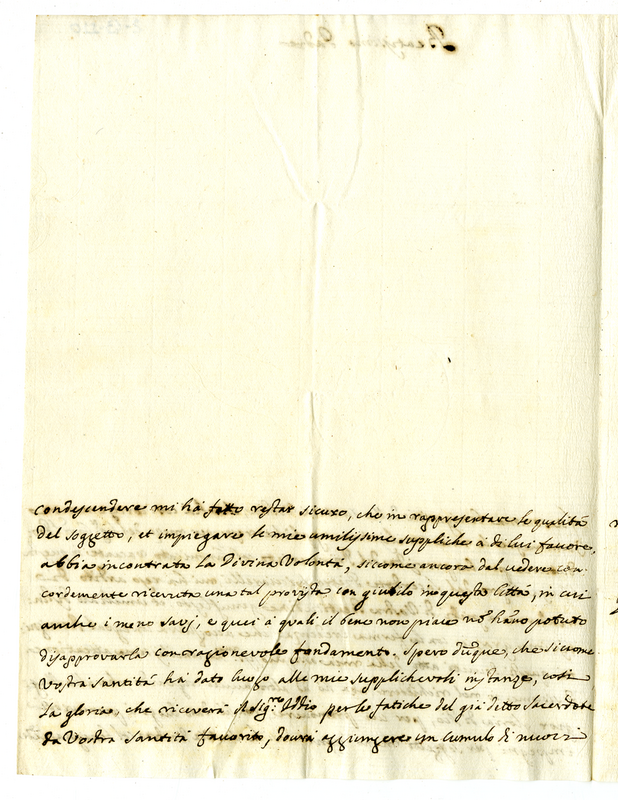 condescendere mi hà fatto restar sicuro, che in rappresentare le qualità
del soggetto, et impiegare le mie umilissime suppliche a di lui favore,
abbia incontrata la Divina Volontà, siccome ancora dal vedere con-
cordemente ricevuta una tal provista con giubilo in questa Città, in cui
anche i meno savj, e quei à quali il bene non piace nõ hãno potuto
disapprovarla con ragionevole fondamento. Spero dũque, che siccome
Vostra Santità hà dato luogo alle mie supplichevoli instanze, così
la gloria, che riceverà il Sig.re Iddio per le fatiche del già detto Sacerdote
da Vostra Santità favorito, dovrà aggiungere un cumulo di nuovi